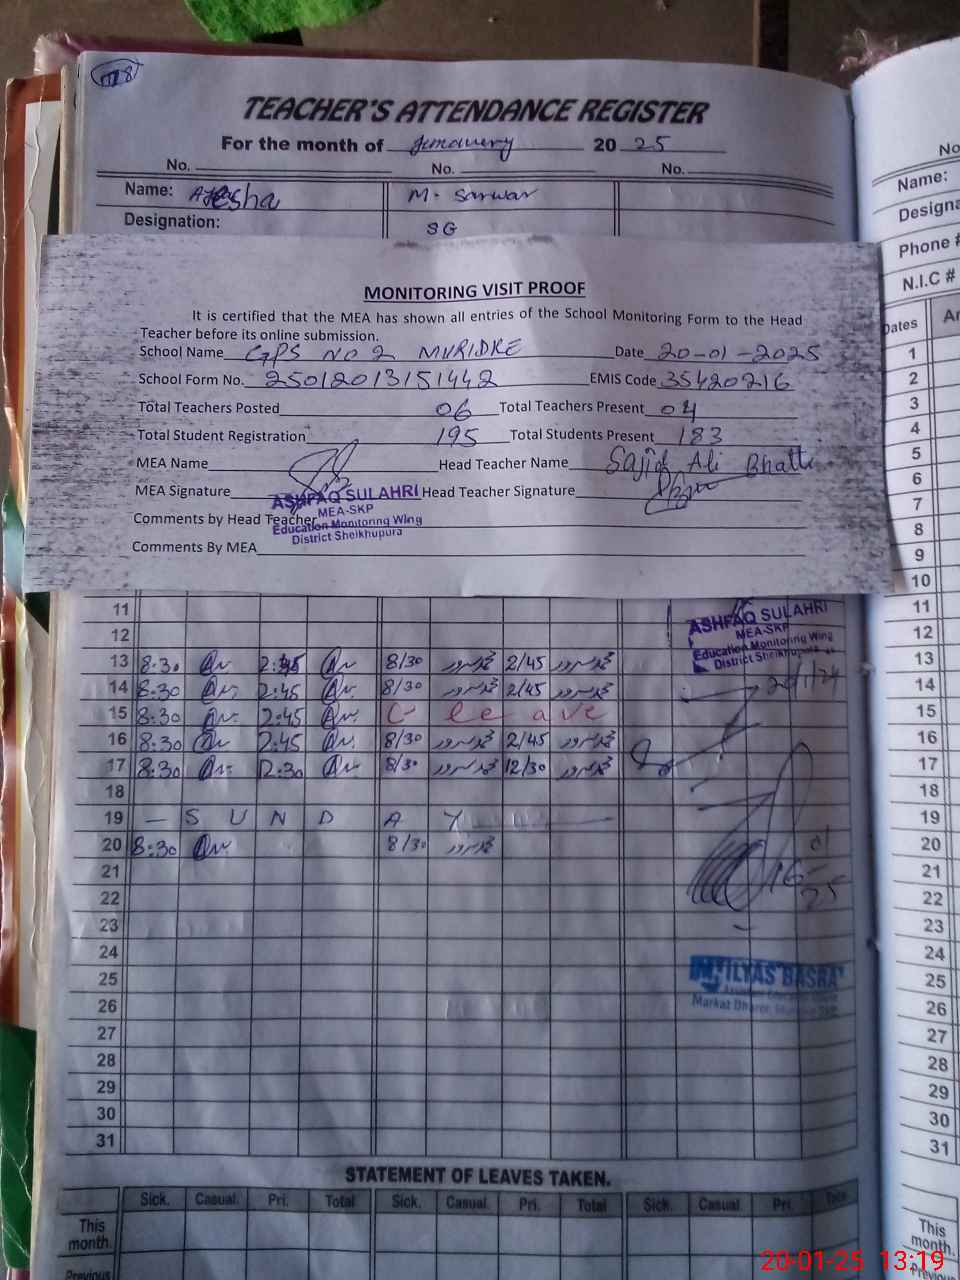 178
TEACHER'S ATTENDANCE REGISTER
For the month of January 2025
No. No. No.
Name: Ayesha M. Sarwar
Designation: SG
MONITORING VISIT PROOF
It is certified that the MEA has shown all entries of the School Monitoring Form to the Head
Teacher before its online submission.
School Name GPS NO 2 MURIDKE Date 20-01-2025
School Form No. 25012013151442 EMIS Code 35420216
Total Teachers Posted 06 Total Teachers Present 04
Total Student Registration 195 Total Students Present 183
MEA Name Head Teacher Name Sajid Ali Bhatti
MEA Signature Head Teacher Signature
ASHFAQ SULAHRI
MEA-SKP
Education Monitoring Wing
District Sheikhupura
Comments by Head Teacher
Comments By MEA
11
12
13 8:30 2:45 8/30 محمد سرور 2/45 محمد سرور
14 8:30 2:45 8/30 محمد سرور 2/45 محمد سرور
15 8:30 2:45 C leave
16 8:30 2:45 8/30 محمد سرور 2/45 محمد سرور
17 8:30 12:30 8/30 محمد سرور 12/30 محمد سرور
18
19 — S U N D A Y —
20 8:30 8/30 محمد سرور
21
22
23
24
25
26
27
28
29
30
31
ASHFAQ SULAHRI
MEA-SKP
Education Monitoring Wing
District Sheikhupura
20/1/24
16 01 25
M. ILYAS BASRA
STATEMENT OF LEAVES TAKEN.
Sick. Casual. Pri. Total Sick. Casual. Pri. Total Sick. Casual. Pri. Total
This
month.
Previous
No
Name:
Designa
Phone #
N.I.C #
Dates Ar
1
2
3
4
5
6
7
8
9
10
11
12
13
14
15
16
17
18
19
20
21
22
23
24
25
26
27
28
29
30
31
This
month.
Previous
20-01-25 13:19